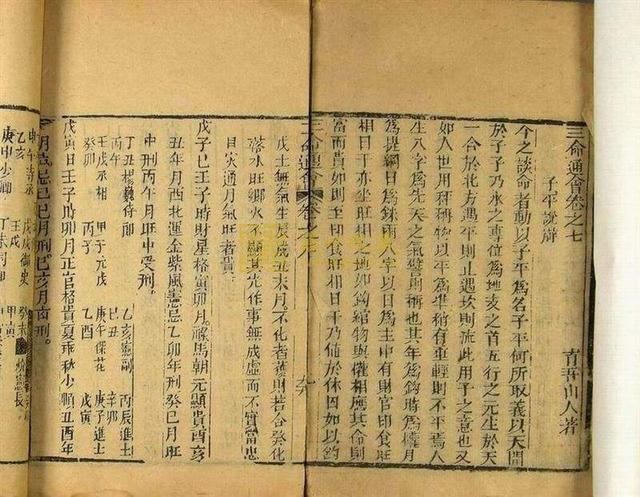 三命通會卷之七
育吾山人著
子平說辯
今之談命者動以子平為名子平何所取義以天開
於子子乃水之專位為地支之首五行之元生於天
一合於北方遇平則止遇坎則流此用子之意也又
如人世用秤稱物以平為準稍有重輕則不平焉人
生八字為先天之氣譬則稱也其年為鈎時為月
為提綱日為銖兩人字以日為主中有財官印食
相日干亦坐旺相之地如鈎綰物與權相應其命則
富而貴如則主印食旺相日干乃値於休囚如以鈎
三命通會 卷之八
戊土無氣生辰戌丑未月不化者獲財若合癸化
落水旺鄉火不顯其光作事無成虛而不實當患
目灾通月氣旺者貴
戊子日壬子時財星格寅卯月祿馬朝元顯貴酉亥
丑年月西北運金紫風憲忌乙卯年刑癸巳月旺
中刑丙午月旺中受刑
丁丑楊巍侍郎 乙亥憲副 丙辰進士
丙午 甲子元戎 己丑 辛卯
壬戌丞相 庚午保花 庚子進士
癸卯 乙酉 戊寅
戊寅日壬子時卯月正官格貴夏乖秋少順丑酉年
月高忌己巳月刑巳亥月酉刑